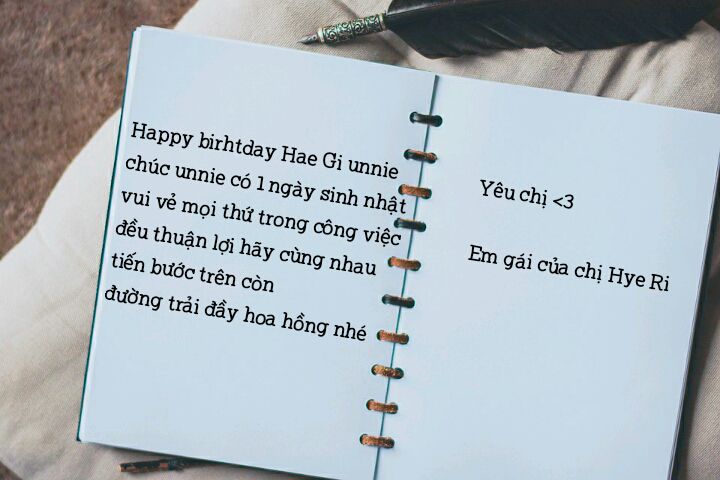 Happy birhtday Hae Gi unnie
chúc unnie có 1 ngày sinh nhật
vui vẻ mọi thứ trong công việc
đều thuận lợi hãy cùng nhau
tiến bước trên còn
đường trải đầy hoa hồng nhé
Yêu chị <3
Em gái của chị Hye Ri